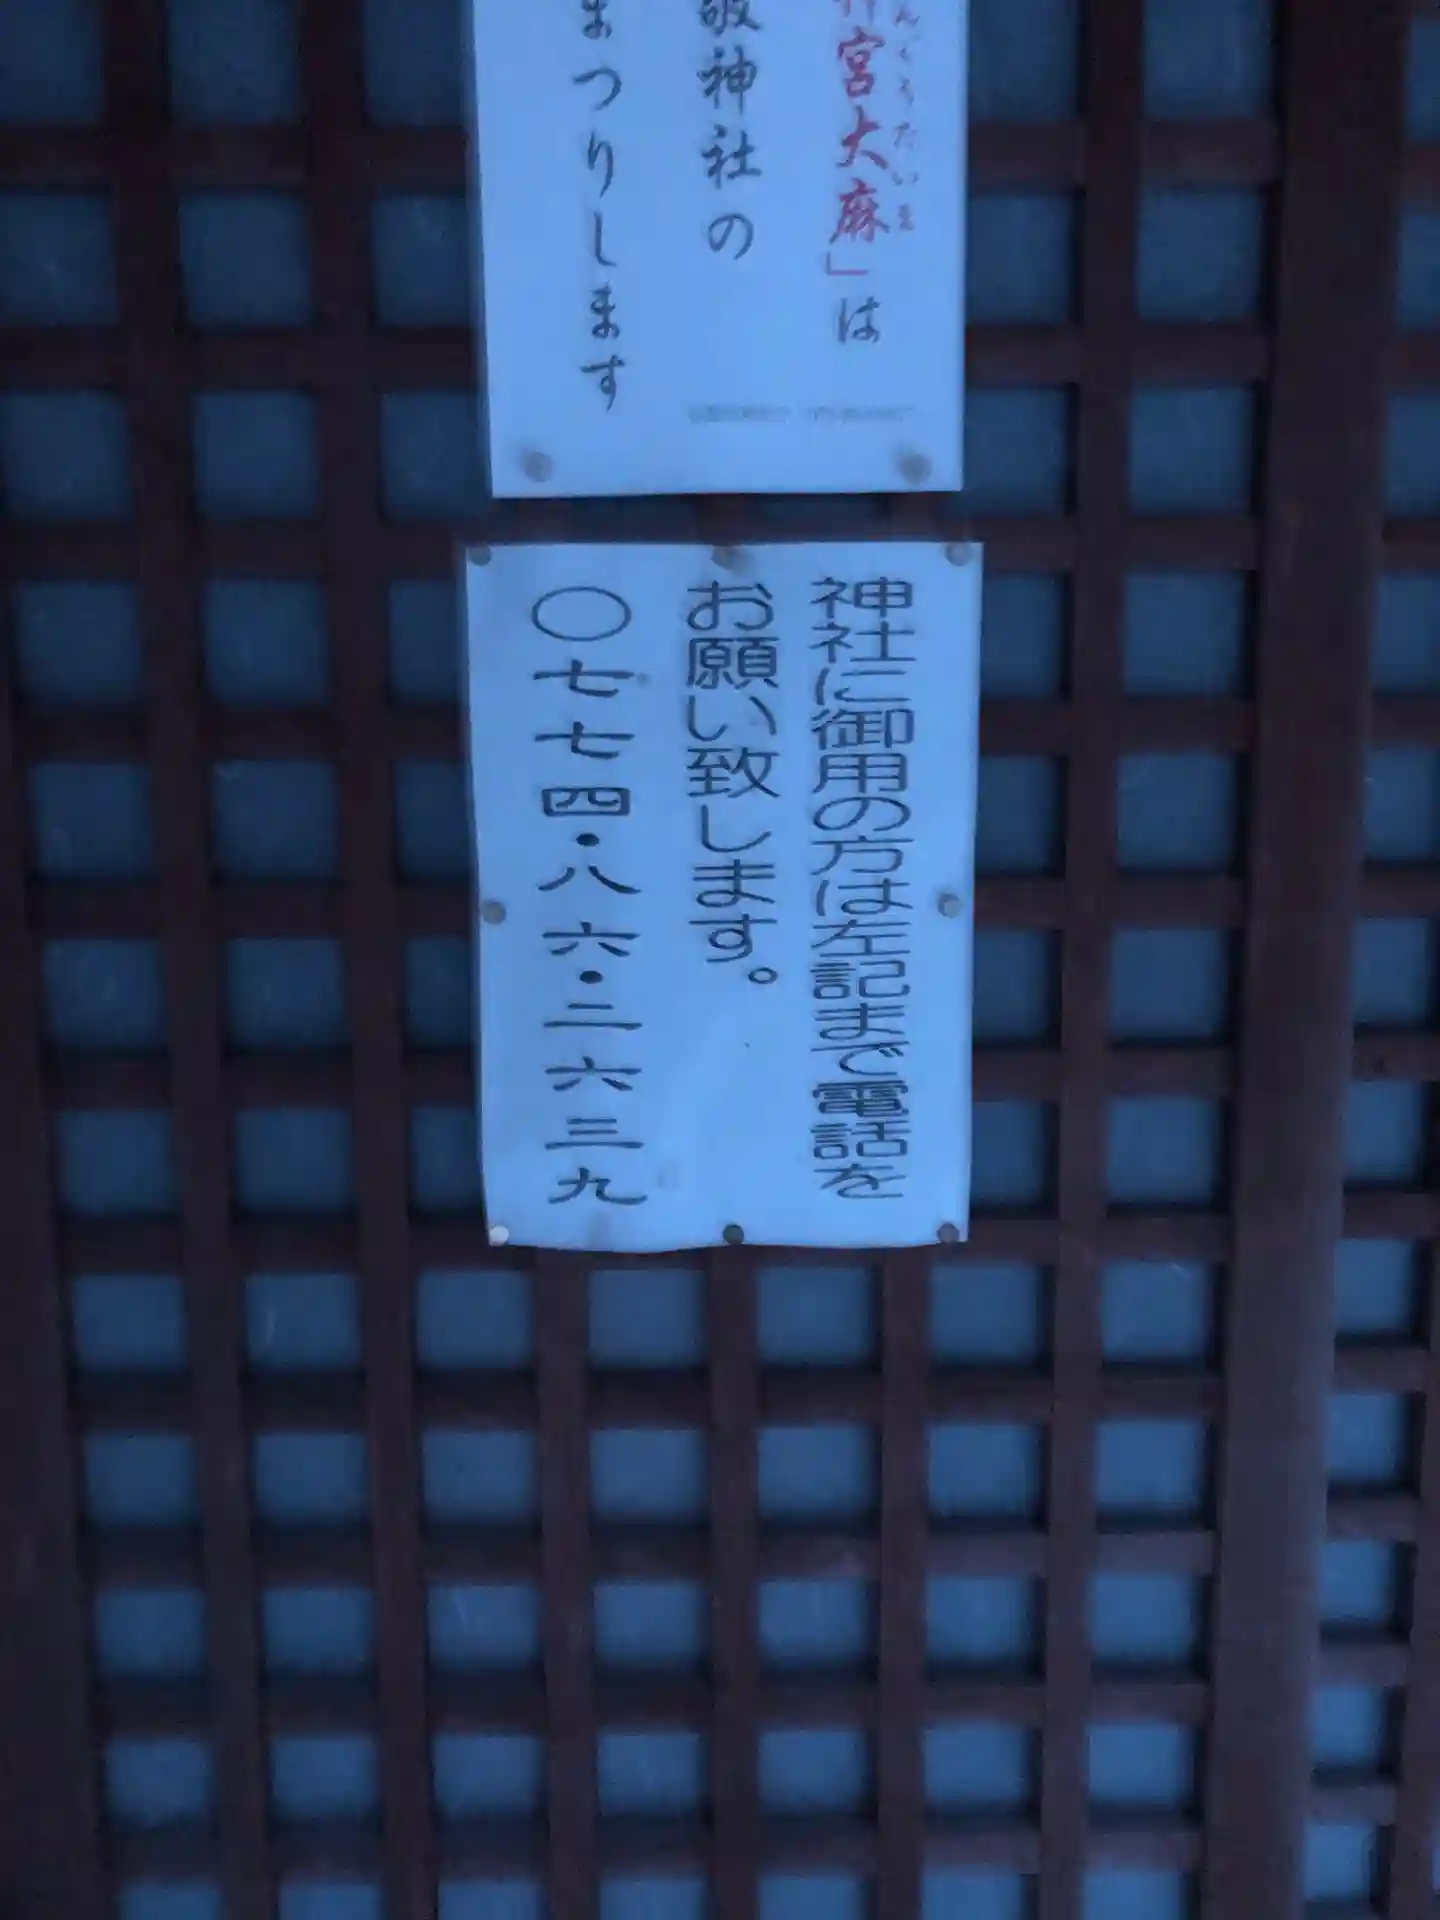 神宮大麻」は
んぐうたいま
敬神社の
まつりします
神社に御用の方は左記まで電話を
お願い致します。
〇七七四・八六・二六三九